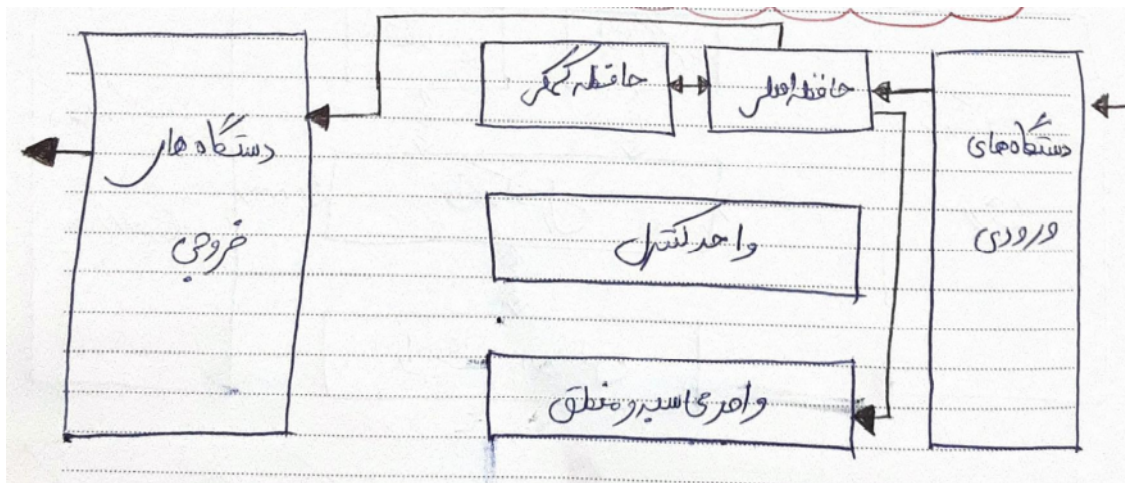 دستگاه‌های
ورودی
حافظه اصلی
حافظه کمکی
واحد کنترل
واحد محاسبه و منطق
دستگاه های
خروجی